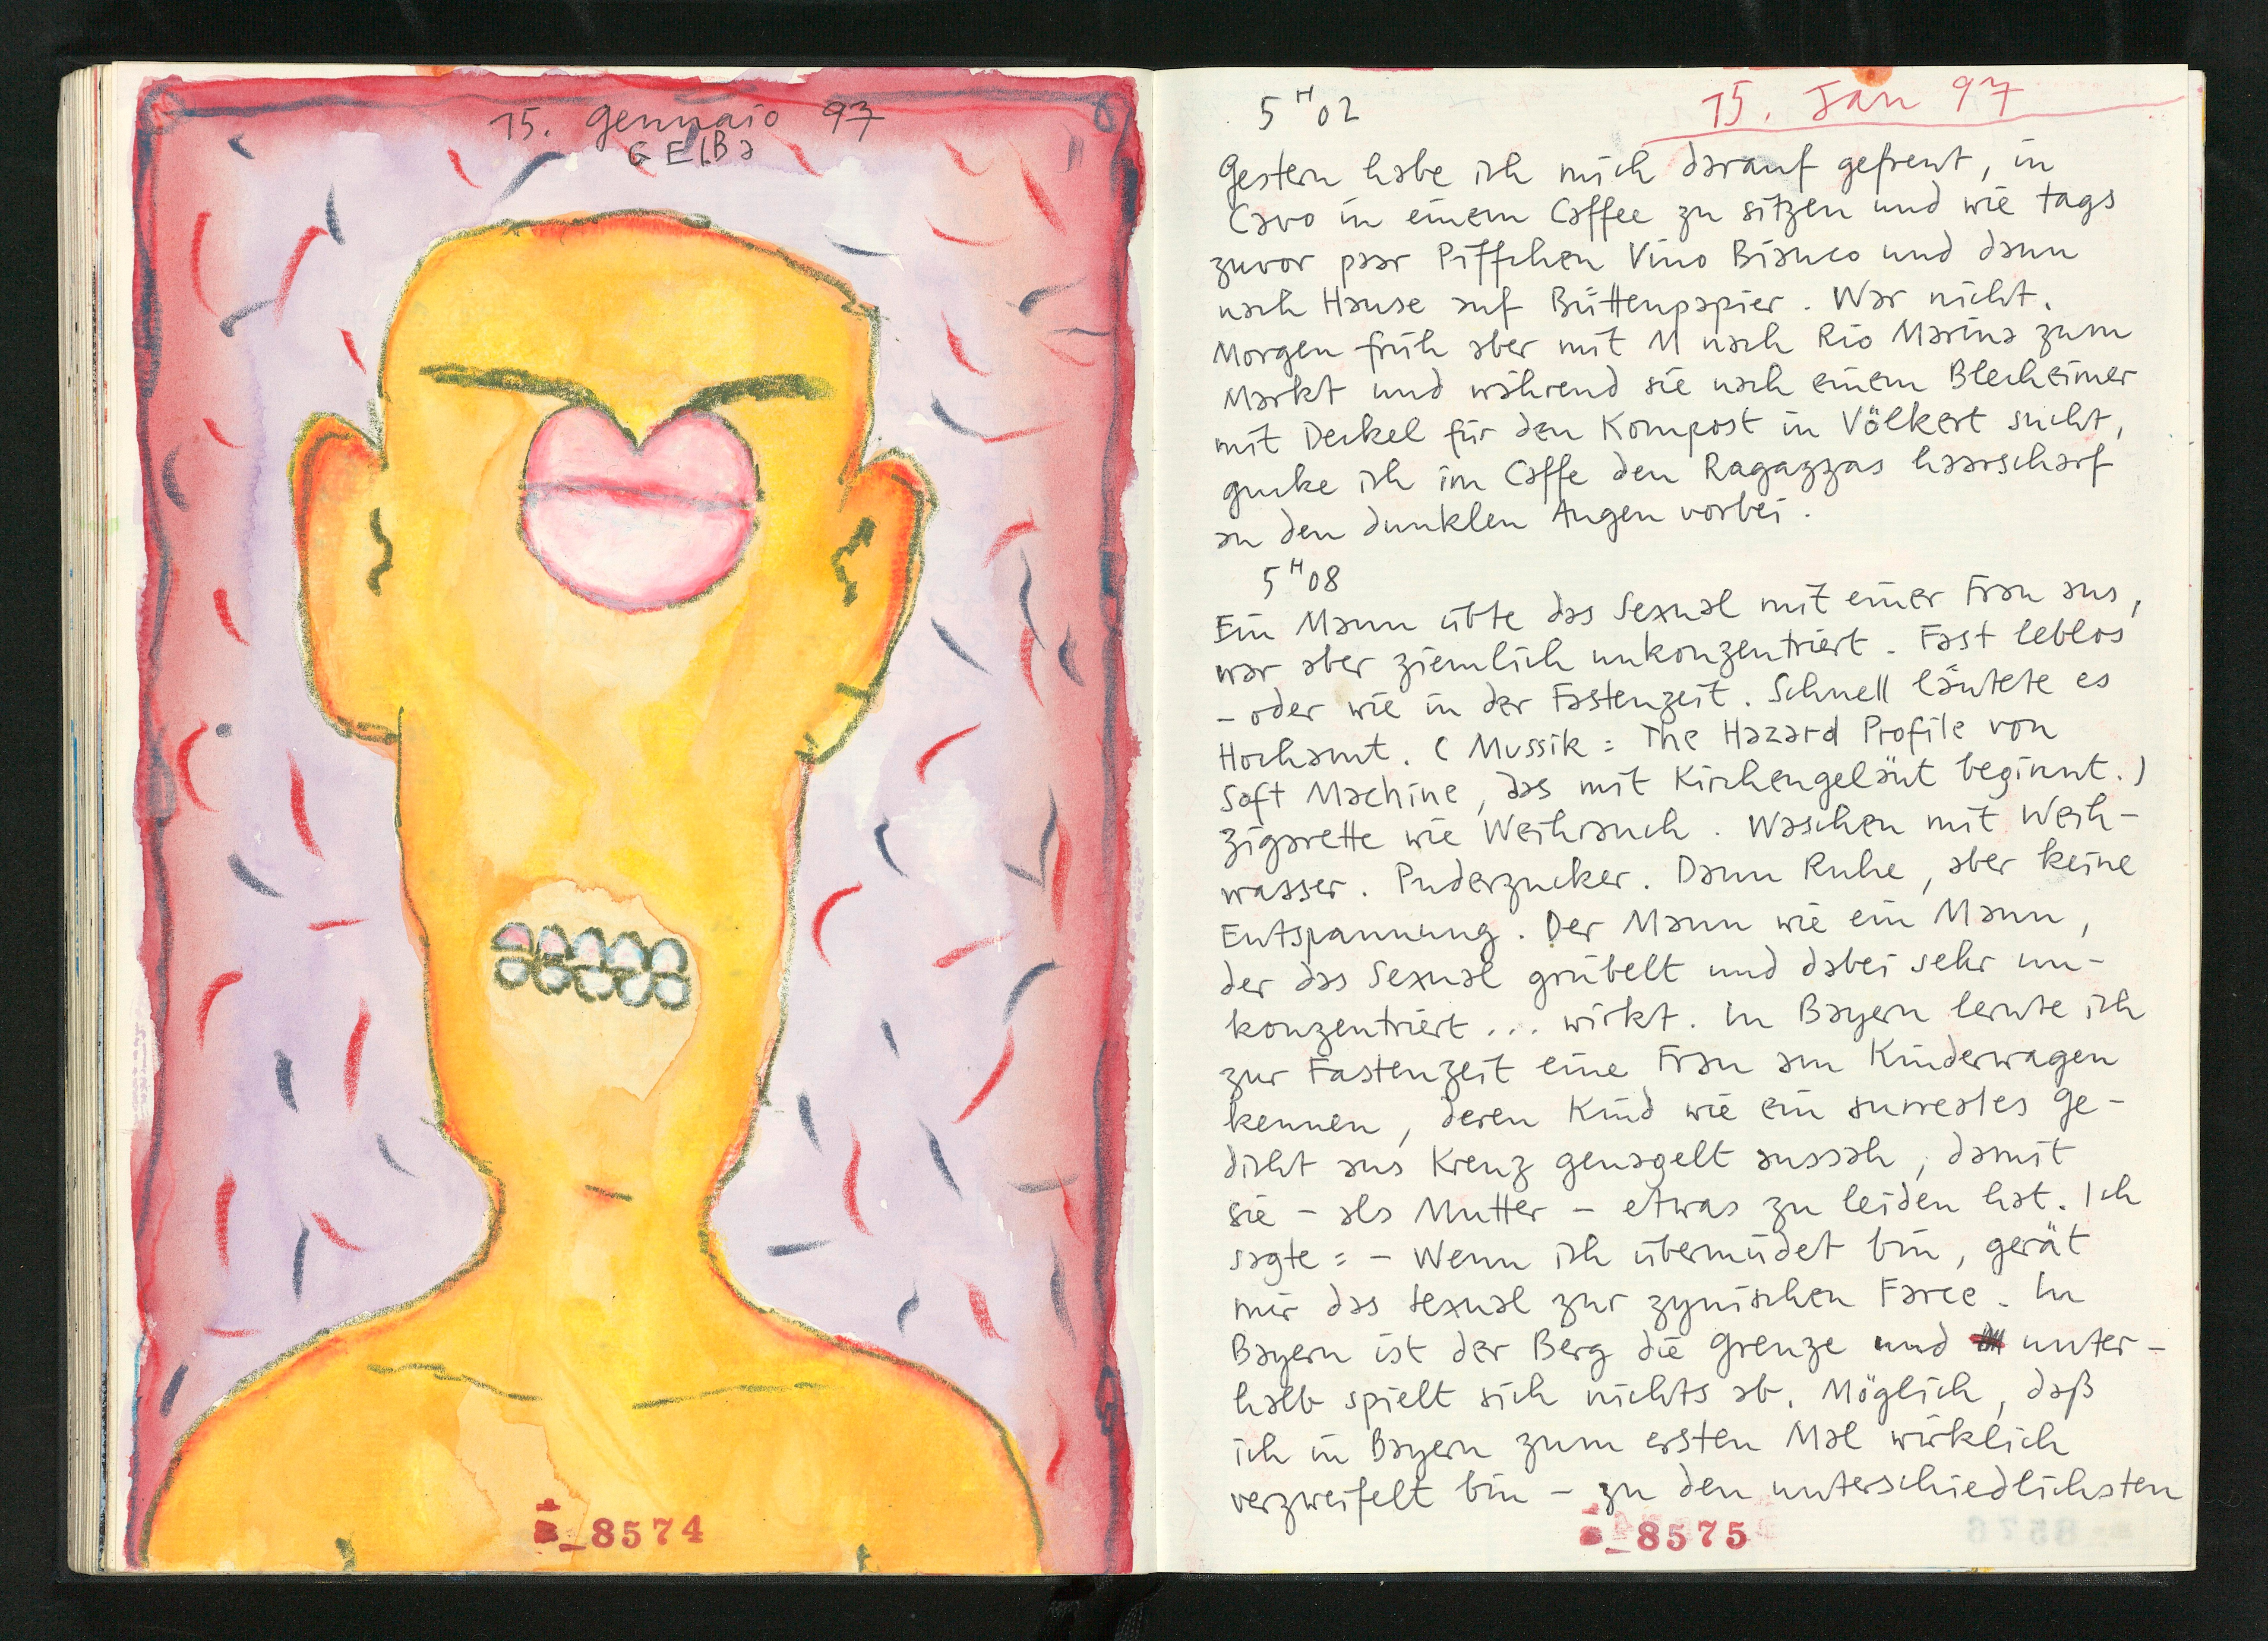 15. gennaio 97
GElBa
8574
5H02
15. Jan 97
Gestern habe ich mich darauf gefreut, in
Cavo in einem Caffee zu sitzen und wie tags
zuvor paar Piffchen Vino Bianco und dann
nach Hause auf Büttenpapier. War nicht.
Morgen früh aber mit M nach Rio Marina zum
Markt und während sie nach einem Blecheimer
mit Deckel für den Kompost in Völkert sucht,
gucke ich im Caffe den Ragazzas haarscharf
an den dunklen Augen vorbei.
5H08
Ein Mann übte das Sexual mit einer Frau aus,
war aber ziemlich unkonzentriert. Fast leblos
- oder wie in der Fastenzeit. Schnell läutete es
Hochamt. (Mussik: The Hazard Profile von
Soft Machine, das mit Kirchengeläut beginnt.)
Zigarette wie Weihrauch. Waschen mit Weih-
wasser. Puderzucker. Dann Ruhe, aber keine
Entspannung. Der Mann wie ein Mann,
der das Sexual grübelt und dabei sehr un-
konzentriert... wirkt. In Bayern lernte ich
zur Fastenzeit eine Frau am Kinderwagen
kennen, deren Kind wie ein surreales Ge-
dicht ans Kreuz genagelt aussah, damit
sie - als Mutter - etwas zu leiden hat. Ich
sagte: - Wenn ich übermüdet bin, gerät
mir das Sexual zur zynischen Farce. In
Bayern ist der Berg die Grenze und unter-
halb spielt sich nichts ab. Möglich, daß
ich in Bayern zum ersten Mal wirklich
verzweifelt bin - zu den unterschiedlichsten
8575